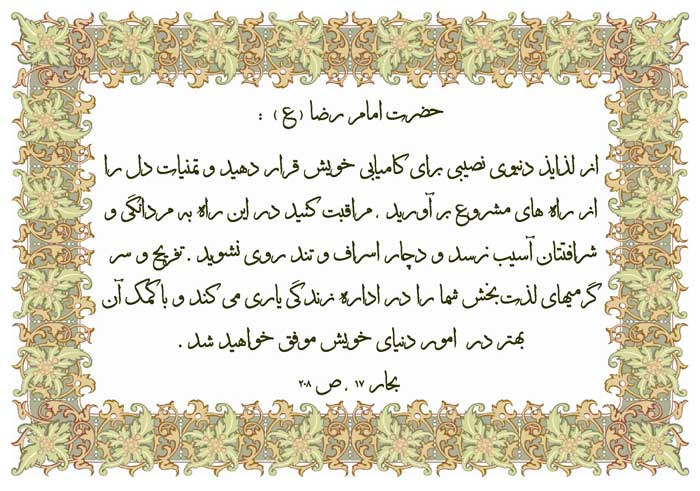 حضرت امام رضا (ع) :
از لذایذ دنیوی نصیبی برای کامیابی خویش قرار دهید و تمنیات دل را
از راه های مشروع بر آورید . مراقبت کنید در این راه به مردانگی و
شرافتتان آسیب نرسد و دچار اسراف و تند روی نشوید . تفریح و سر
گرمیهای لذت بخش شما را در اداره زندگی یاری می کند و با کمک آن
بهتر در امور دنیای خویش موفق خواهید شد .
بحار ۱۷ . ص ۲۰۸